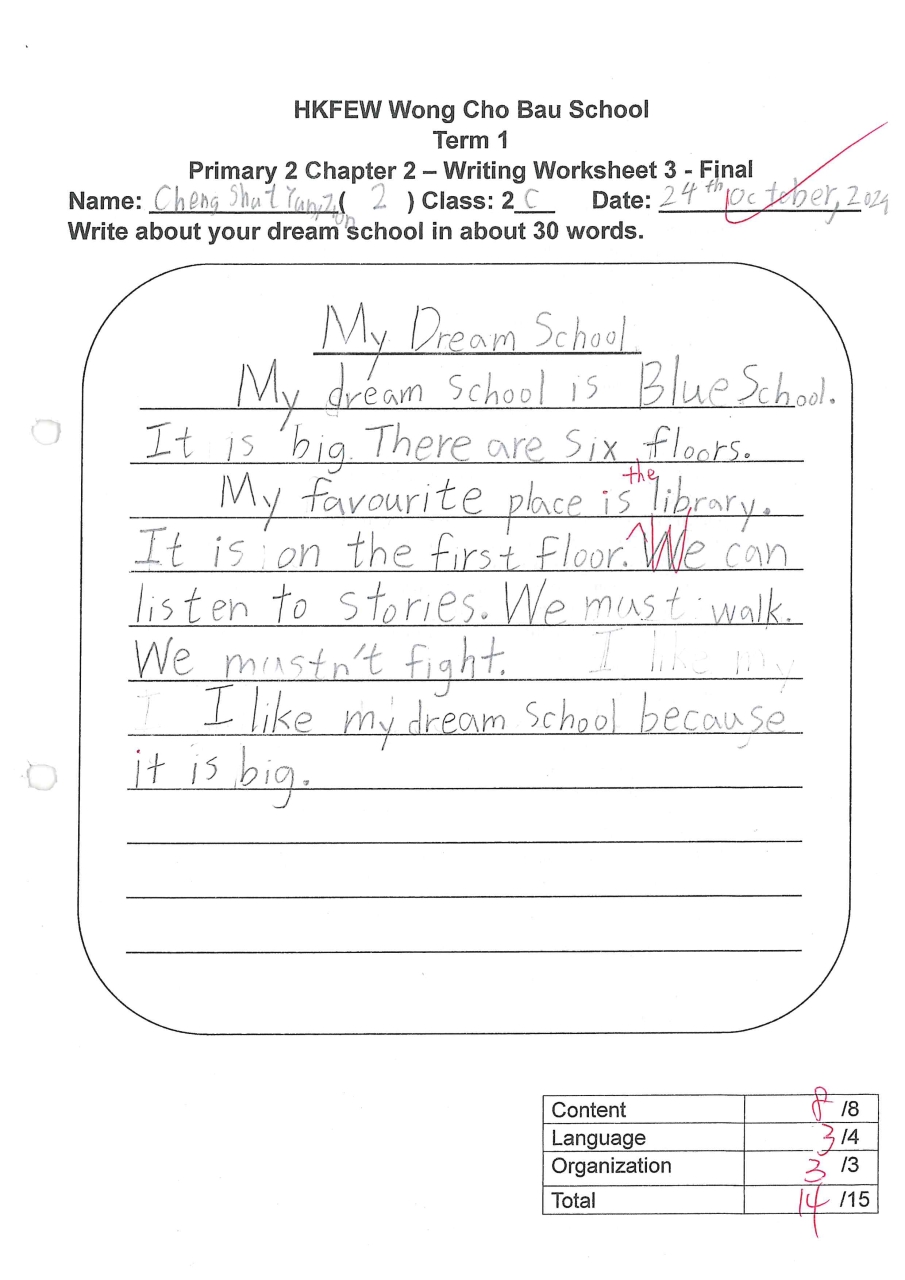 HKFEW Wong Cho Bau School
Term 1
Primary 2 Chapter 2 – Writing Worksheet 3 - Final
Name: Cheng Shut Yan, Zion ( 2 ) Class: 2 C Date: 24th October, 2024
Write about your dream school in about 30 words.
My Dream School
My dream school is Blue School.
It is big. There are six floors.
the
My favourite place is library.
It is on the first floor. We can
listen to stories. We must walk.
We mustn't fight. I like my
I I like my dream school because
it is big.
Content 8 /8
Language 3 /4
Organization 3 /3
Total 14 /15